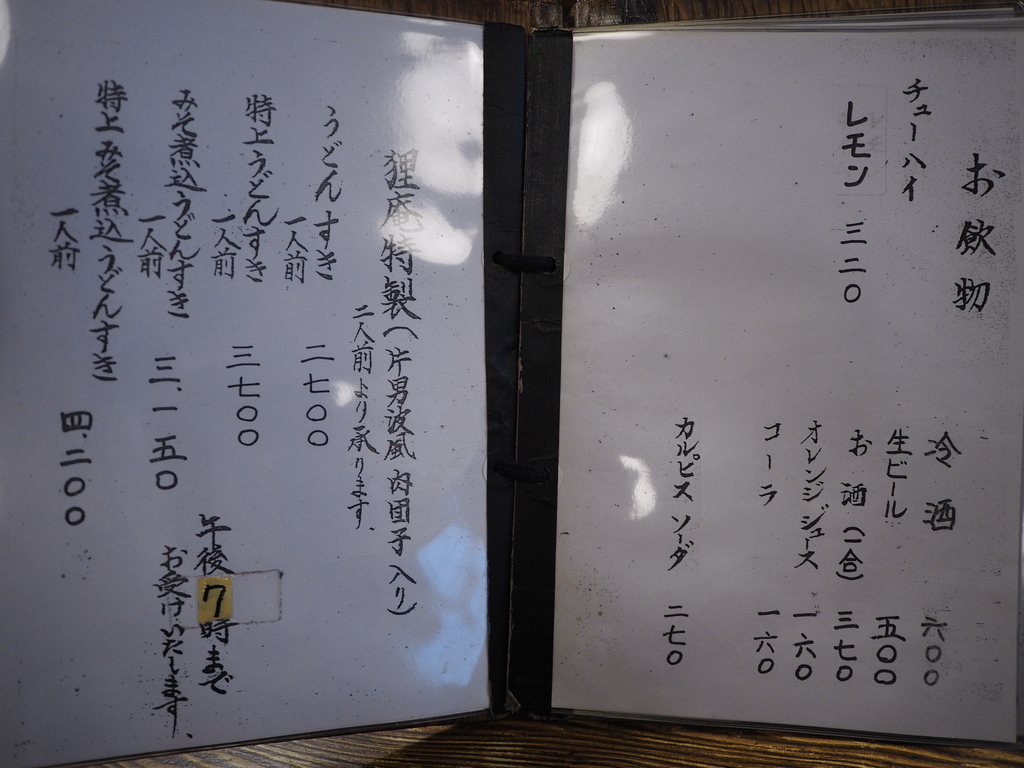 お飲物
冷酒 六〇〇
生ビール 五〇〇
お酒(一合) 三七〇
オレンジジュース 一六〇
コーラ 一六〇
カルピスソーダ 二七〇
チューハイ
レモン 三二〇
狸庵特製(片男波風肉団子入り)
二人前より承ります、
うどんすき
一人前 二七〇〇
特上うどんすき
一人前 三七〇〇
みそ煮込うどんすき
一人前 三、一五〇
特上みそ煮込うどんすき
一人前 四、二〇〇
午後7時まで
お受けいたします、